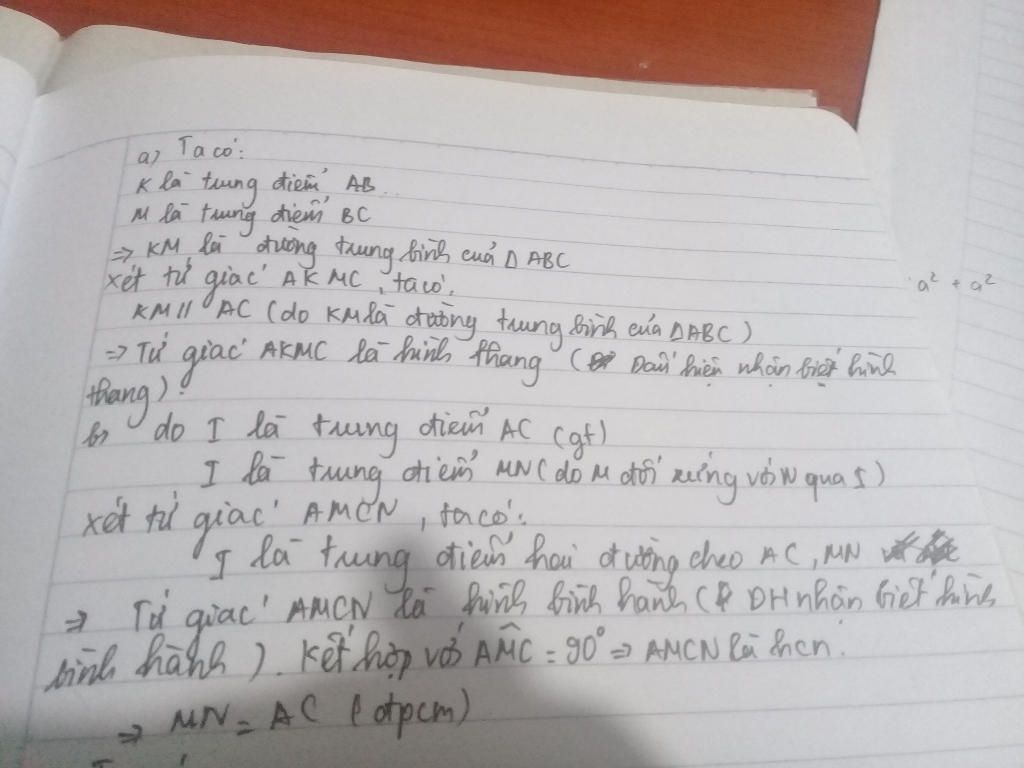 a) Ta có:
K là trung điểm AB
M là trung điểm BC
=> KM là đường trung bình của Δ ABC
xét tứ giác AKMC, ta có:
KM// AC (do KM là đường trung bình của ΔABC)
=> Tứ giác AKMC là hình thang ( Dấu hiệu nhận biết hình
thang).
b, do I là trung điểm AC (gt)
I là trung điểm MN (do M đối xứng với N qua I)
xét tứ giác AMCN, ta có:
I là trung điểm hai đường chéo AC, MN
=> Tứ giác AMCN là hình bình hành ( DH nhận biết hình
bình hành). Kết hợp với AM̂C = 90° => AMCN là hcn.
=> MN = AC (đpcm)
a² + a²